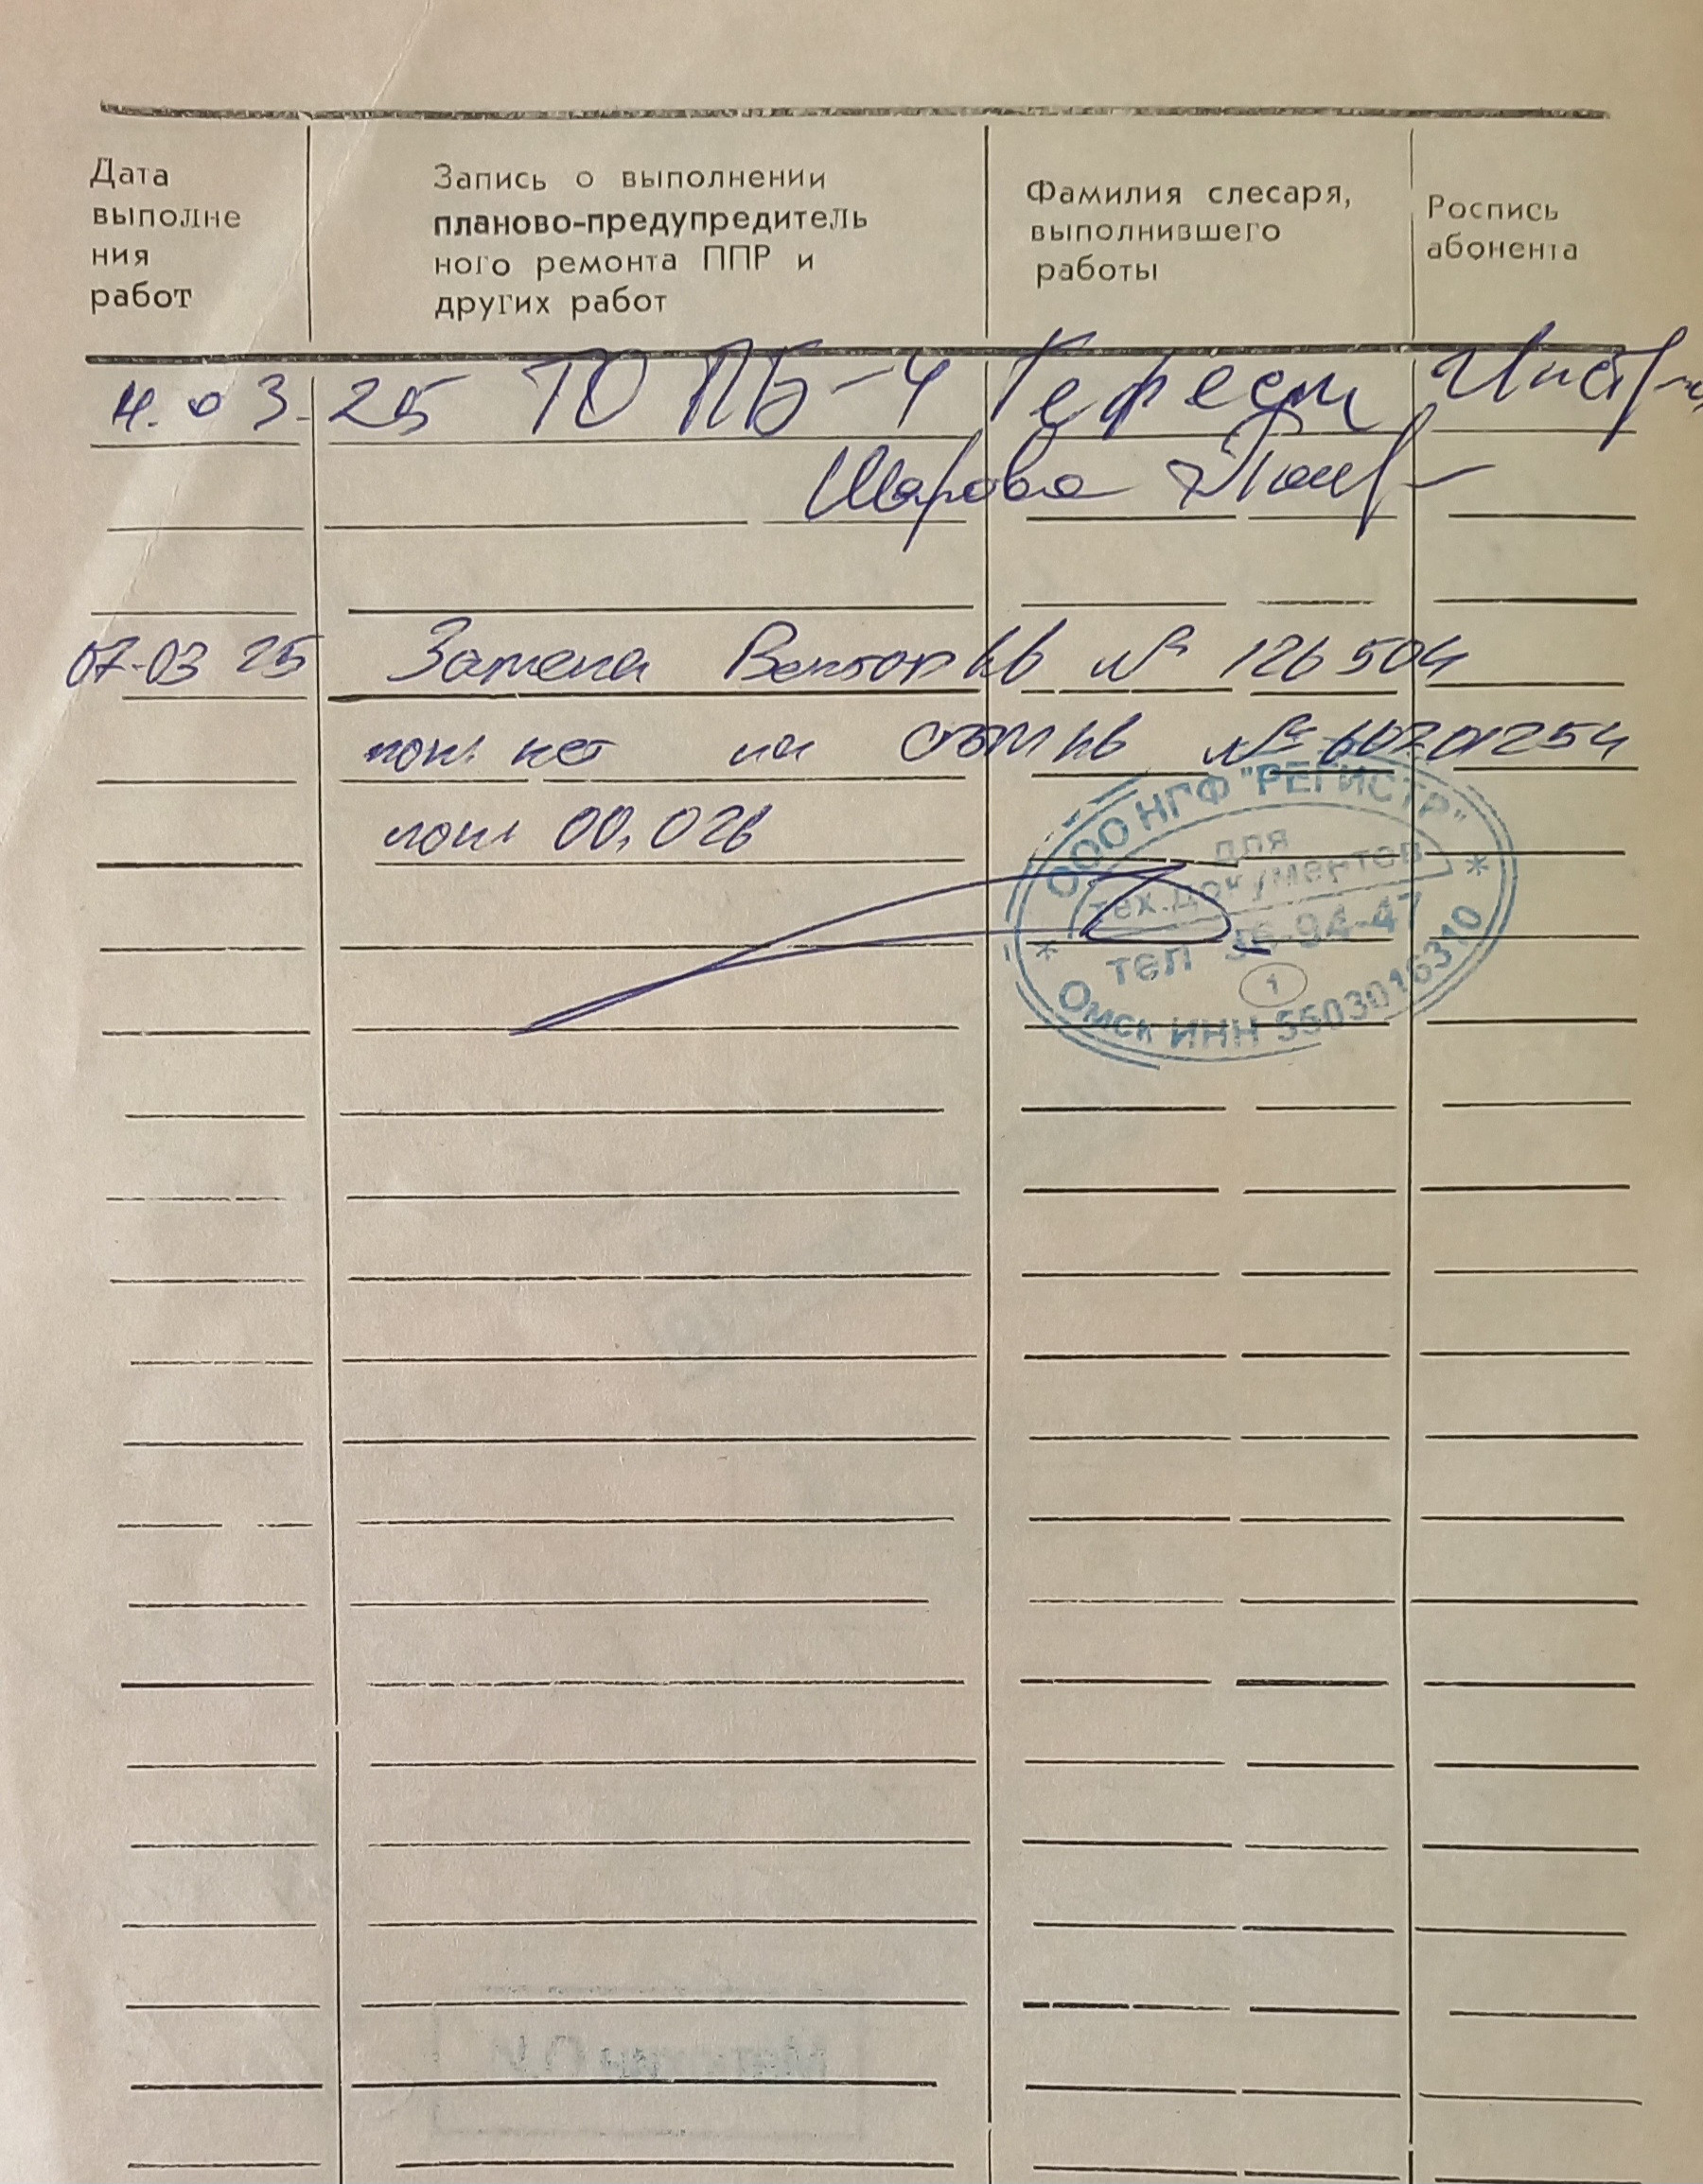 Дата выполне ния работ
Запись о выполнении планово-предупредитель ного ремонта ППР и других работ
Фамилия слесаря, выполнившего работы
Роспись абонента
4.03.25 ТО ПБ-4 Гефест Инст
Шарова
07-03 25 Замена Вектор № 126504
пок. нет на СГБМ № 60201254
пок. 00,026
ООО НГФ "РЕГИСТР"
для
тех.документов
тел 36-94-47
1
Омск ИНН 5503016310